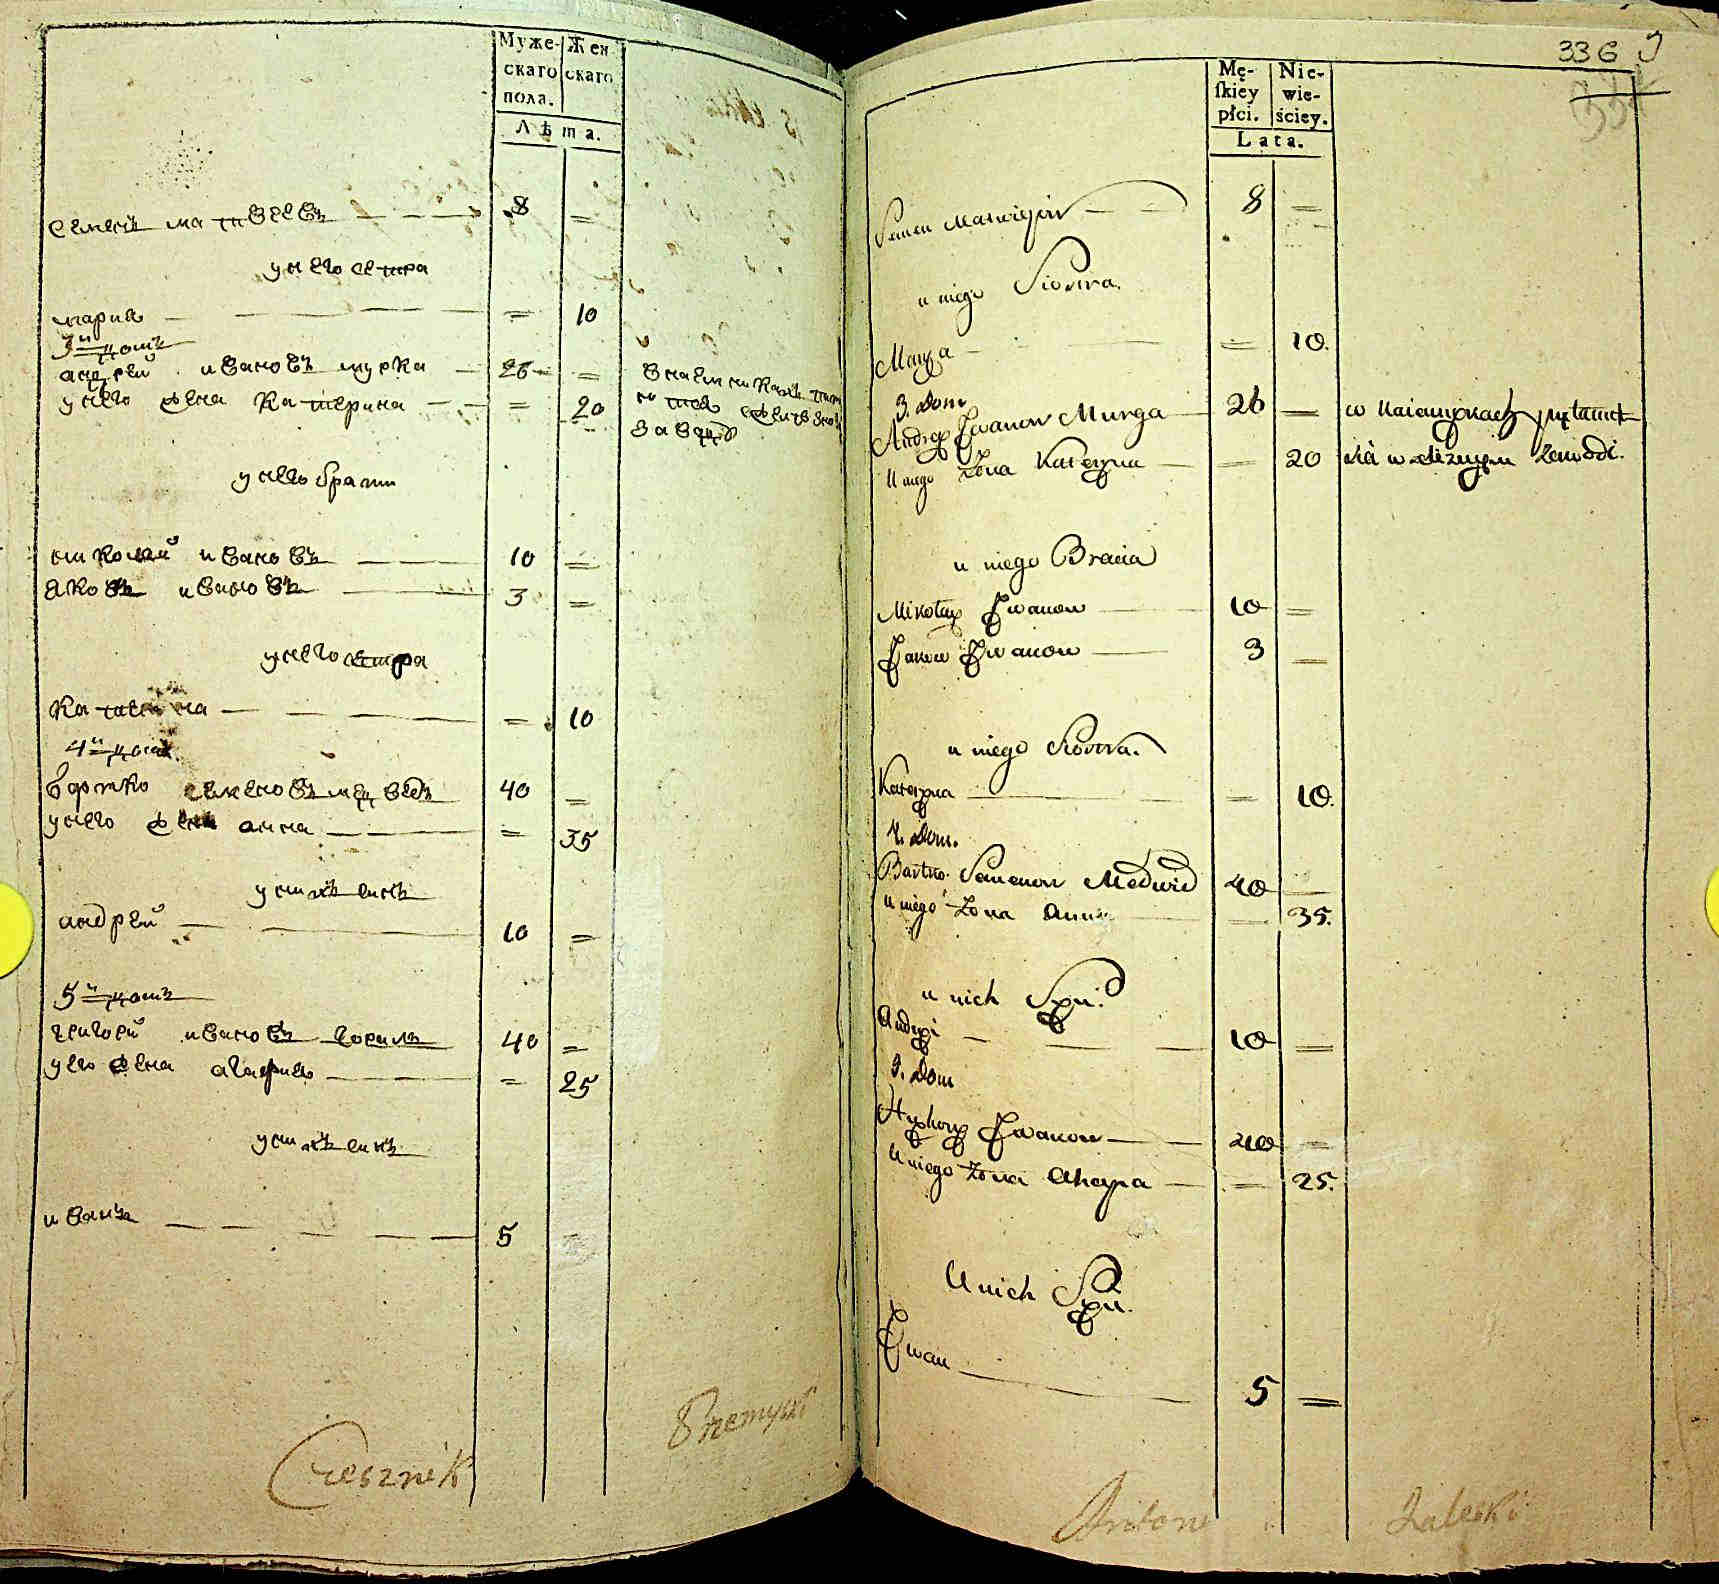 Муже-
скаго
пола.
Жен
скаго
Лѣта.
семенъ матвеевъ 8 =
у него сестра
мария = 10
3й домъ
андрей ивановъ мурка 26 =
у него жена катерина = 20
у него брати
николай ивановъ 10 =
яковъ ивановъ 3 =
у него сестра
= 10
4й домъ
бартко семеновъ медведь 40 =
у него жена анна = 35
у нихъ синъ
андрей 10 =
5й домъ
григорей ивановъ 40 =
у его жена агафия = 25
у нихъ синъ
иванъ 5 =
Czesznik Przemyski
336
Mę-
ſkiey
płci.
Nie-
wie-
ściey.
Lata.
Semen Matwiejow 8 =
u niego Siostra.
Marya = 10.
3. Dom
Andrey Jwanow Murga 26 =
U niego Żona Kateryna = 20
u niego Bracia
Mikołay Jwanow 10 =
Jakow Jwanow 3 =
u niego Siostra.
Kateryna = 10.
4. Dom.
Bartko Semenow Medwid 40 =
u niego Żona Anna = 35.
u nich Syn.
Andryi 10 =
5. Dom
Hryhory Jwanow 40 =
U niego Żona Ahapa = 25.
U nich Syn.
Jwan 5 =
Antoni Zaleski